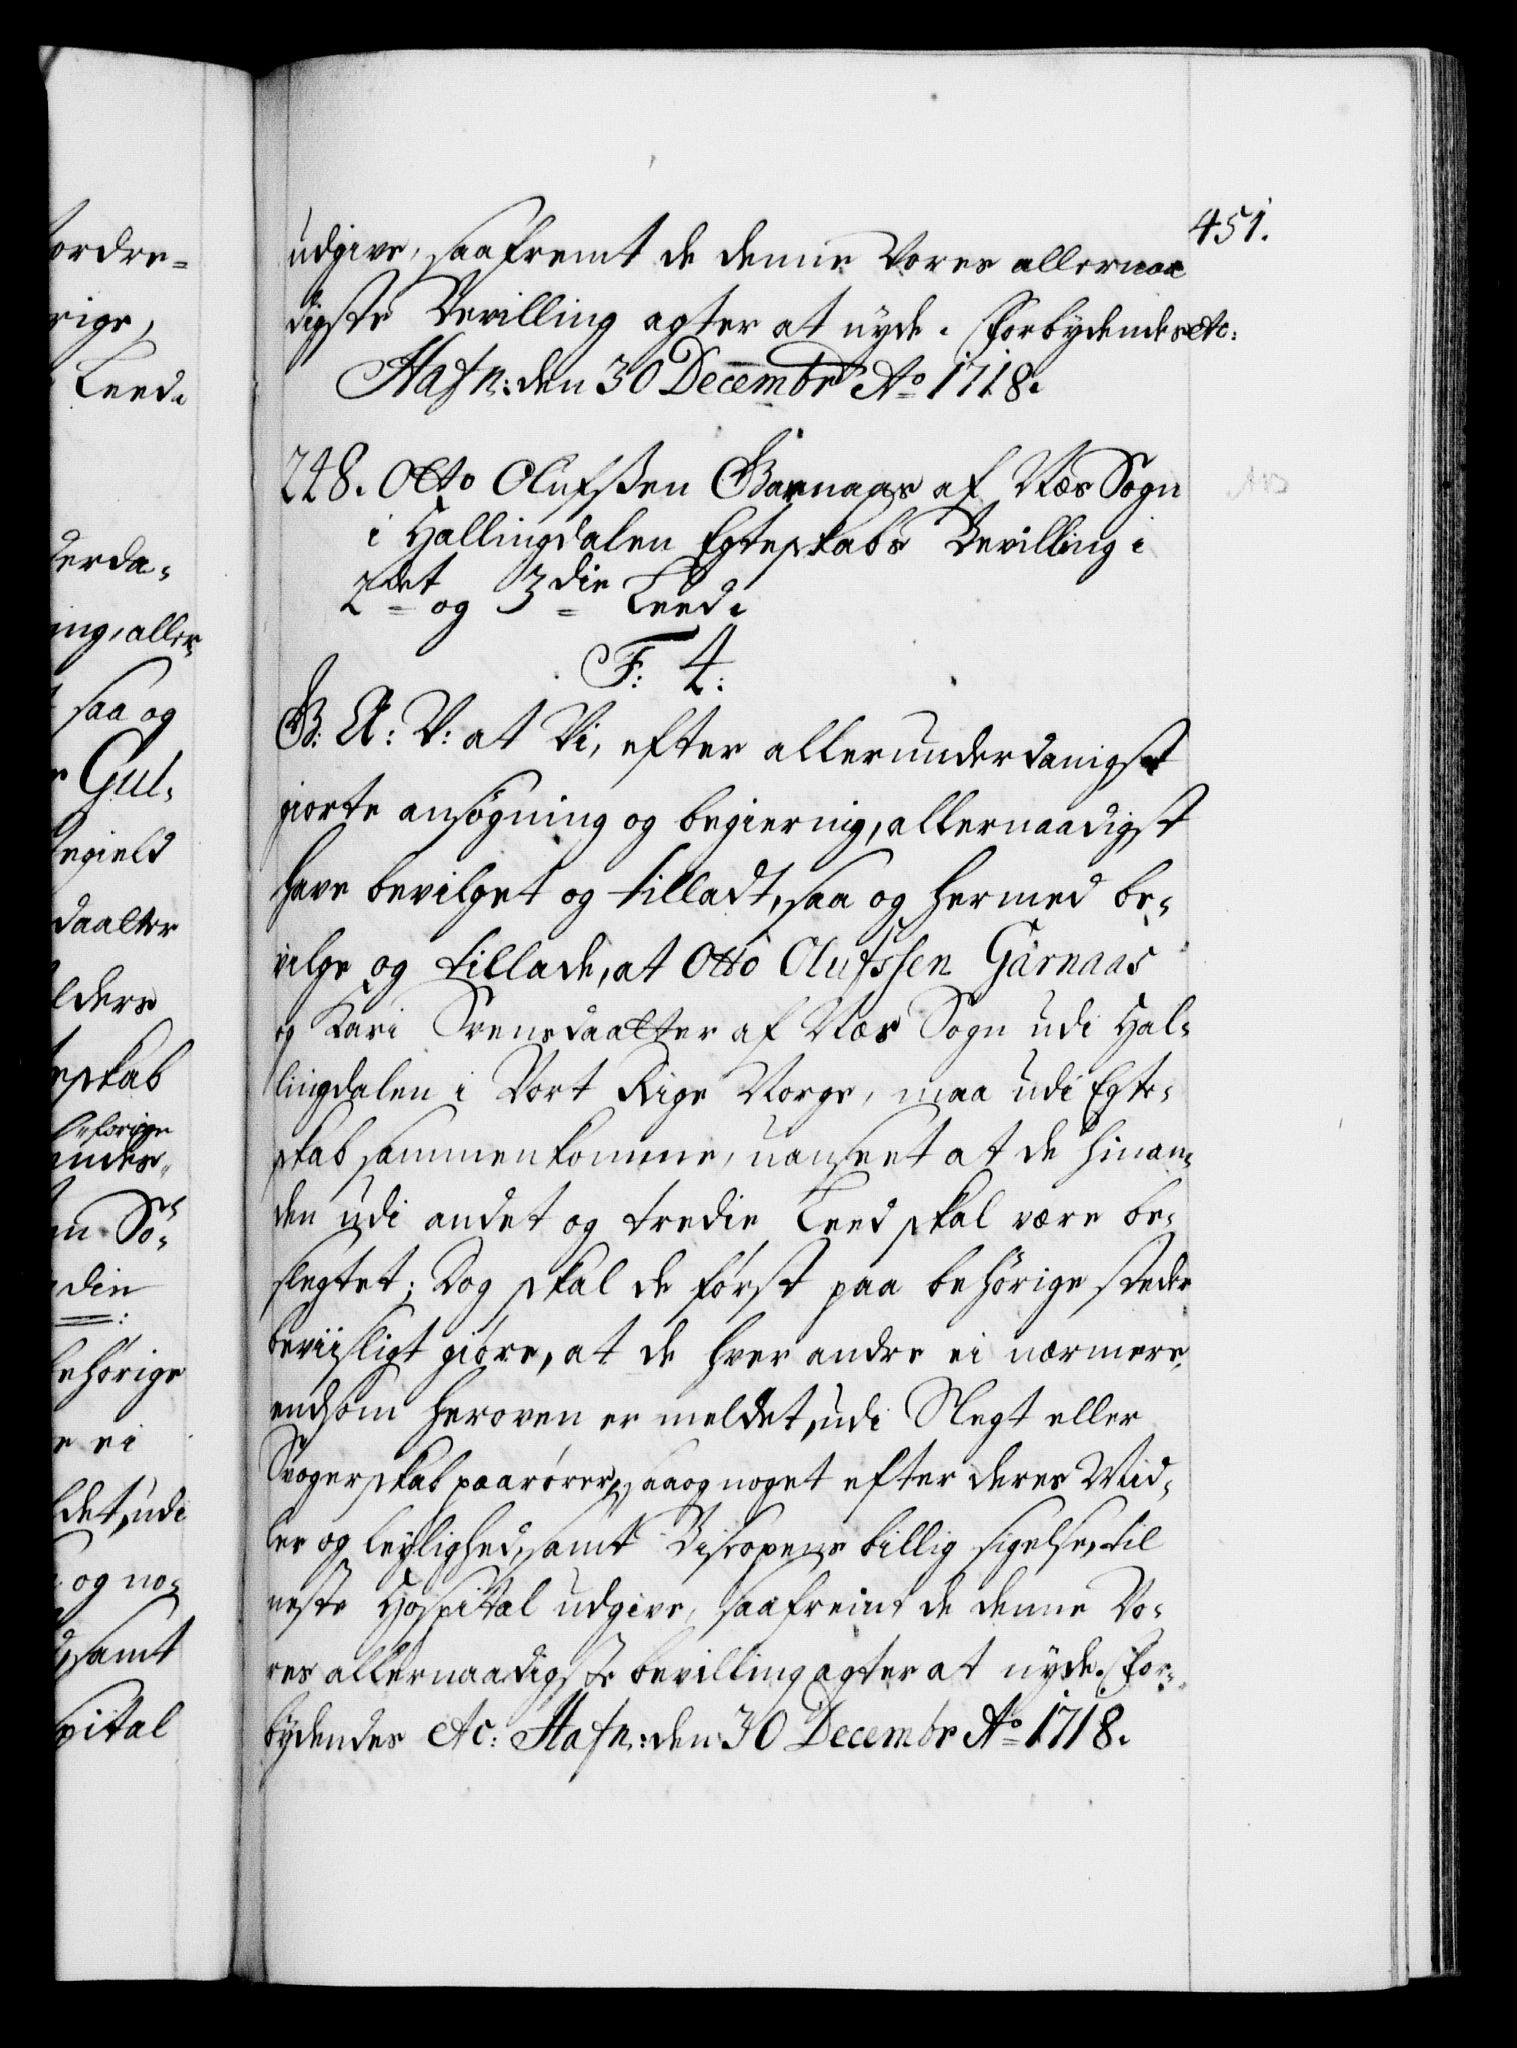 451.
udgive, saafremt de denne Vores allernaa
digste Bevilling agter at nyde. Forbydendes etc:
Hafn: den 30 Decembr Ao 1718.
248. Otto Olufßen Garnaas af Næs Sogn
i Hallingdalen Egteskabs Bevilling i
2det og 3die Leed.
F: 4:
G: A: V: at Vi, efter allerunderdanigst
giorte ansøgning og begiering, allernaadigst
have bevilget og tilladt, saa og hermed be-
vilge og tillade, at Otto Olufssen Garnaas
og Kari Svensdaatter af Næs Sogn udi Hal-
lingdalen i Vort Rige Norge, maa udi Egte-
skab sammenkomme, uanseet at de hinan-
den udi andet og tredie Leed skal være be-
slegtet; Dog skal de først paa behørige steder
beviisligt giøre, at de hver andre ei nærmere,
endsom heroven er meldet, udi Slegt eller
Svogerskab paarører, saa og noget efter deres Mid-
ler og leylighed, samt Biscopens billig sigelse, til
neste Hospital udgive, saafremt de denne Vo-
res allernaadigste bevilling agter at nyde. For-
bydendes etc: Hafn: den 30 Decembr Ao 1718.
ordre-
rige,
Leed.
derda-
ing, aller-
saa og
Gul-
egield
daatter
lders
eskab
forige
andes
en Sø-
die
behørige
e ei
ldet, udi
og no-
samt
spital